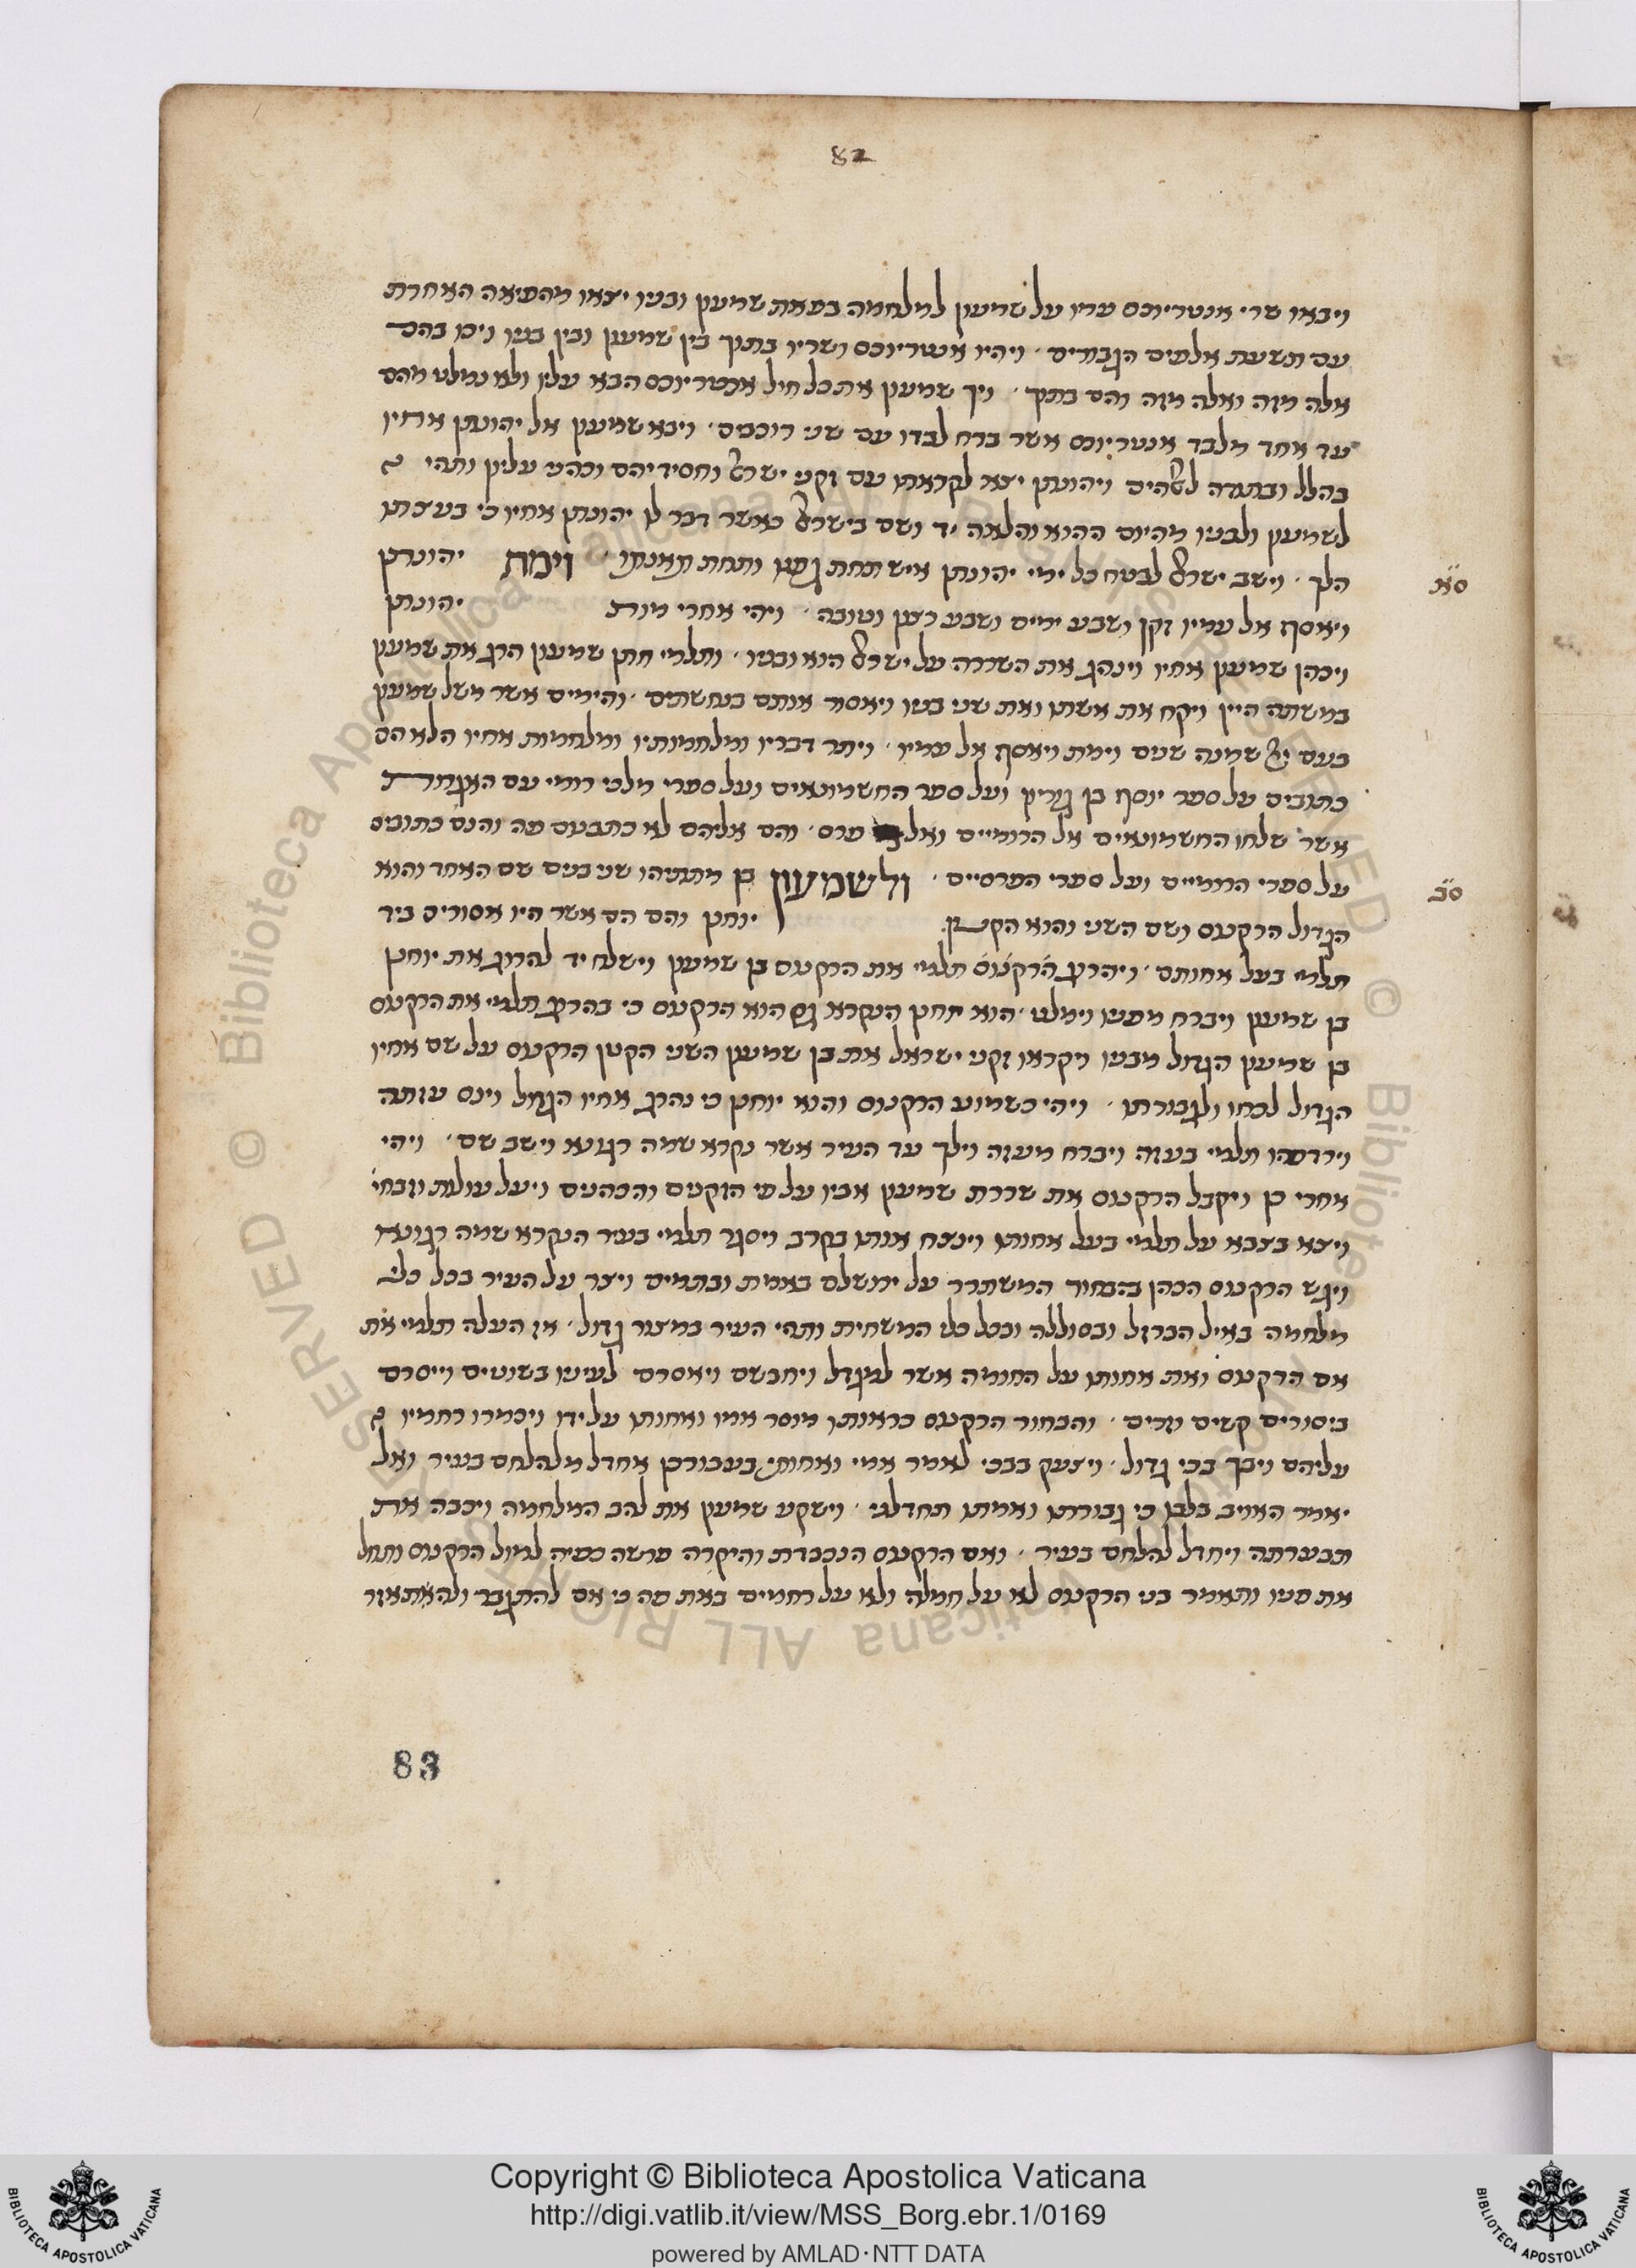 82
ויבאו שרי אנטריוכס עדיו על שמעון למלחמה בפאת שמעון ובניו יצאו מהפיאה האחרת
עם תשעת אלפים הגבורים ויהיו אנטריוכס ושריו בתוך בין שמעון ובין בניו ויכו בהם
אלה מזה ואלה מזה והם בתוך ויך שמעון את כל חיל אנטריוכס הבא עליו ולא נמלט מהם
עד אחד מלבד אנטריוכס אשר ברח לבדו עם שני רוכבים ויבא שמעון אל יהונתן אחיו
בהלל ובתודה לאלהים ויהונתן יצא לקראתו עם זקני ישראל וחסידיהם וכהני עליון ותהי
לשמעון ולבניו מהיום ההוא והלאה יד ושם בישראל כאשר דבר לו יהונתן אחיו כי בעצתו
הלך וישב ישראל לבטח כל ימי יהונתן איש תחת גפנו ותחת תאנתו וימת יהונתן
סא
ויאסף אל עמיו זקן ושבע ימים ושבע רצון וטובה ויהי אחרי מות יהונתן
ויכהן שמעון אחיו וינהג את השררה על ישראל הוא ובניו ותלמי חתן שמעון הרג את שמעון
במשתה היין ויקח את אשתו ואת שני בניו ויאסור אותם בנחשתים והימים אשר משל שמעון
בעם שמנה שנים וימת ויאסף אל עמיו ויתר דבריו ומלחמותיו ומלחמות אחיו הלא הם
כתובים על ספר יוסף בן גוריון ועל ספר החשמונאים ועל ספרי מלכי רומי עם האגרות
אשר שלחו החשמונאים אל הרומיים ואל פרס והם אליהם לא כתבנום פה והנם כתובים
על ספרי הרומיים ועל ספרי הפרסיים ולשמעון בן מתתיהו שני בנים שם האחד והוא
סב
הגדול הרקנוס ושם השני והוא הקטן יוחנן והם הם אשר היו אסורים ביד
תלמי בעל אחותם ויהרג הרקנוס תלמי את הרקנוס בן שמעון וישלח יד להרוג את יוחנן
בן שמעון ויברח מפניו וימלט הוא יוחנן הנקרא גם הוא הרקנוס כי בהרג תלמי את הרקנוס
בן שמעון הגדול מבניו ויקראו זקני ישראל את בן שמעון השני הקטן הרקנוס על שם אחיו
הגדול לכחו ולגבורתו ויהי כשמוע הרקנוס והוא יוחנן כי נהרג אחיו הגדול וינס עזתה
וירדפהו תלמי בעזה ויברח מעזה וילך עד העיר אשר נקרא שמה דגונא וישב שם ויהי
אחרי כן ויקבל הרקנוס את שררת שמעון אביו על פי הזקנים והכהנים ויעל עולות וזבחי
ויצא בצבא על תלמי בעל אחותו וינצח אותו בקרב ויסגר תלמי בעיר הנקרא שמה דגונא
ויגש הרקנוס הכהן הבחור המשתרר על ירושלם באמת ובתמים ויצר על העיר בכל כלי
מלחמה באיל הברזל ובסוללה ובכל כלי המשחית ותהי העיר במצור גדול אז העלה תלמי את
אם הרקנוס ואת אחותו על החומה אשר למגדל ויחבשם ויאסרם לעיניו בשוטים וייסרם
ביסורים קשים וזרים והבחור הרקנוס כראותו מוסר אמו ואחותו על ידו ויכמרו רחמיו
עליהם ויבך בכי גדול ויצעק בבכי לאמר אמי ואחותי בעבורכן אחדל מלהלחם בעיר ואל
יאמר האויב בלבו כי גבורתו ואמיתו תחדלני וישקע שמעון את להב המלחמה ויכבה את
תבערתה ויחדל להלחם בעיר ואם הרקנוס הנכבדת והיקרה פרשה כפיה למול הרקנוס ותחל
את פניו ותאמר בני הרקנוס לא על חמלה ולא על רחמים באת פה כי אם להתגבר ולהתאזר
83
Copyright © Biblioteca Apostolica Vaticana
http://digi.vatlib.it/view/MSS_Borg.ebr.1/0169
powered by AMLAD·NTT DATA